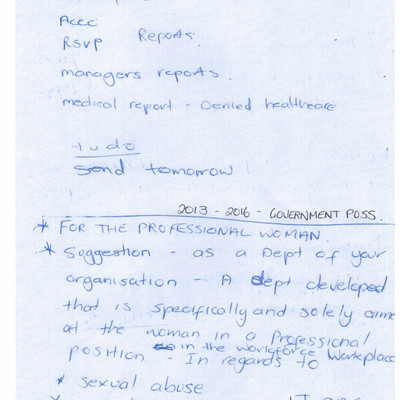 Accc
RSVP Reports.
managers reports.
medical report - Denied healthcare
to do
send tomorrow
2013 - 2016 - GOVERNMENT POSS.
* FOR THE PROFESSIONAL WOMAN.
* Suggestion - as a Dept of your
organisation - A dept developed
that is specifically and solely aime
at the woman in a Professional
position - in the workforce workplace
- In regards to
* sexual abuse